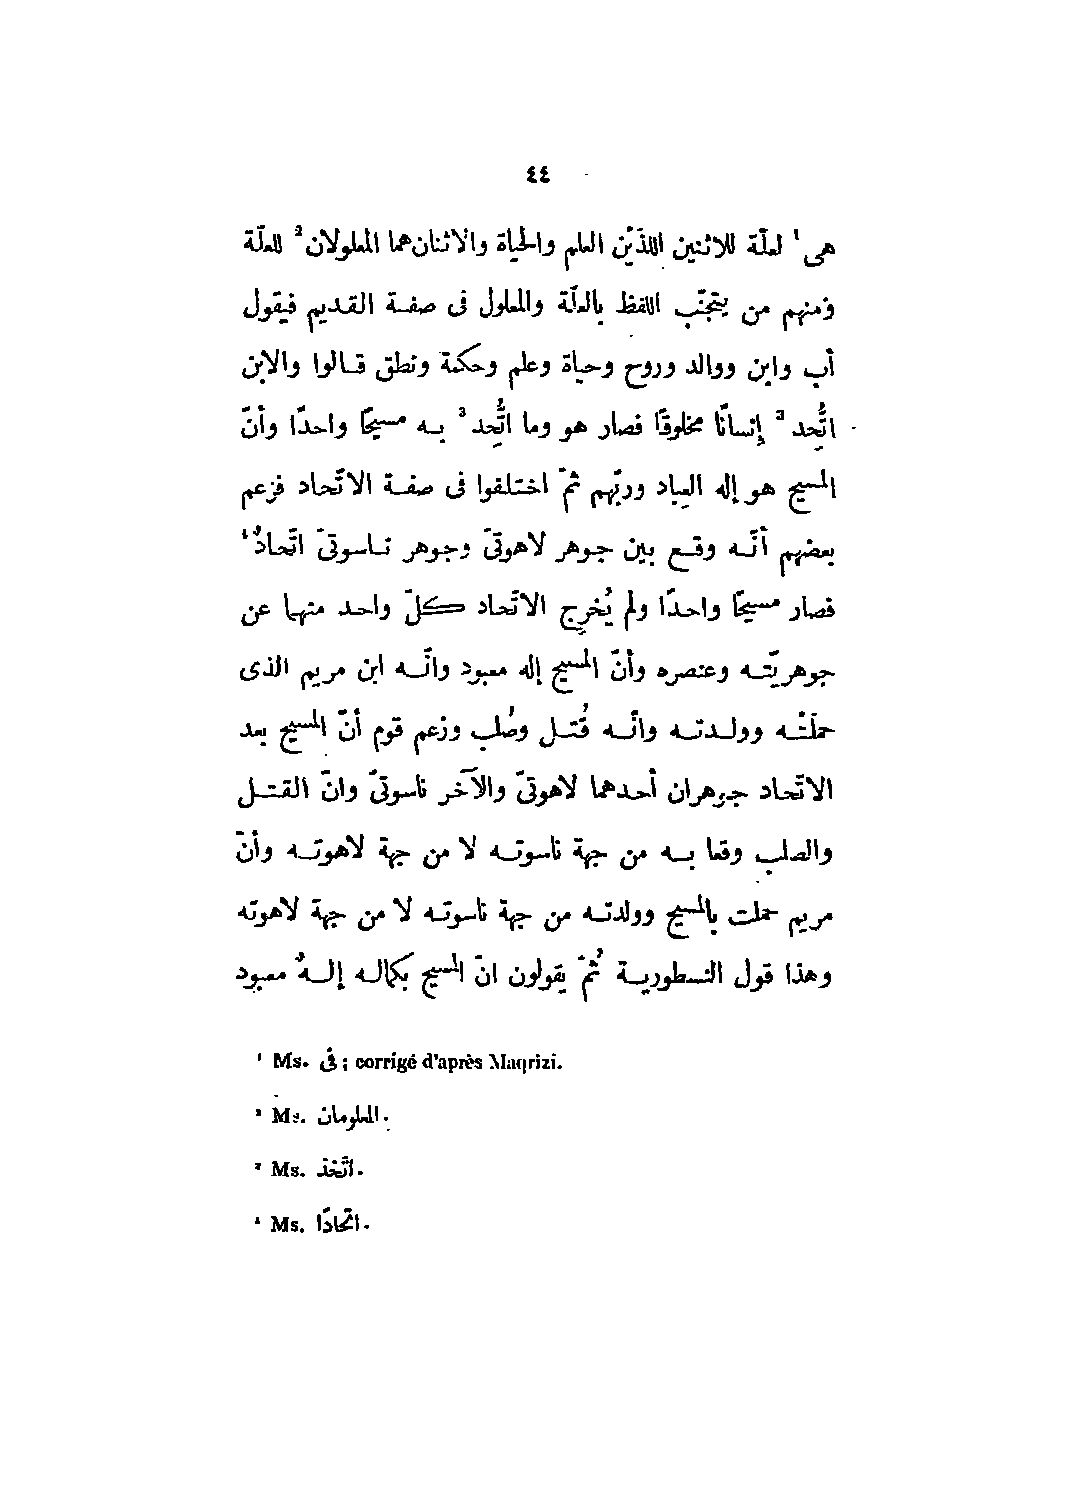 ٤٤
هى¹ لعلّة للاثنين اللذَيْن العلم والحياة والاثنان هما المعلولان² للعلّة
ومنهم من يتجنّب اللفظ بالعلّة والمعلول فى صفة القديم فيقول
أب وابن ووالد وروح وحياة وعلم وحكمة ونطق قالوا والابن
اتُّحِد³ إنسانًا مخلوقًا فصار هو وما اتُّحِد³ به مسيحًا واحدًا وأنّ
المسيح هو إله العباد وربّهم ثمّ اختلفوا فى صفة الاتّحاد فزعم
بعضهم أنّه وقع بين جوهر لاهوتىّ وجوهر ناسوتىّ اتّحادٌ⁴
فصار مسيحًا واحدًا ولم يُخرِج الاتّحاد كلّ واحد منهما عن
جوهريّته وعنصره وأنّ المسيح إله معبود وانّه ابن مريم الذى
حملَتْه وولدته وانّه قُتل وصُلب وزعم قوم أنّ المسيح بعد
الاتّحاد جوهران أحدهما لاهوتىّ والآخر ناسوتىّ وانّ القتل
والصلب وقعا به من جهة ناسوته لا من جهة لاهوته وأنّ
مريم حملت بالمسيح وولدته من جهة ناسوته لا من جهة لاهوته
وهذا قول النسطورية ثُمّ يقولون انّ المسيح بكماله إلهٌ معبود
¹ Ms. فى ; corrigé d'après Maqrizi.
² Ms. المعلومان.
³ Ms. اتَّخذ.
⁴ Ms. اتّحادًا.